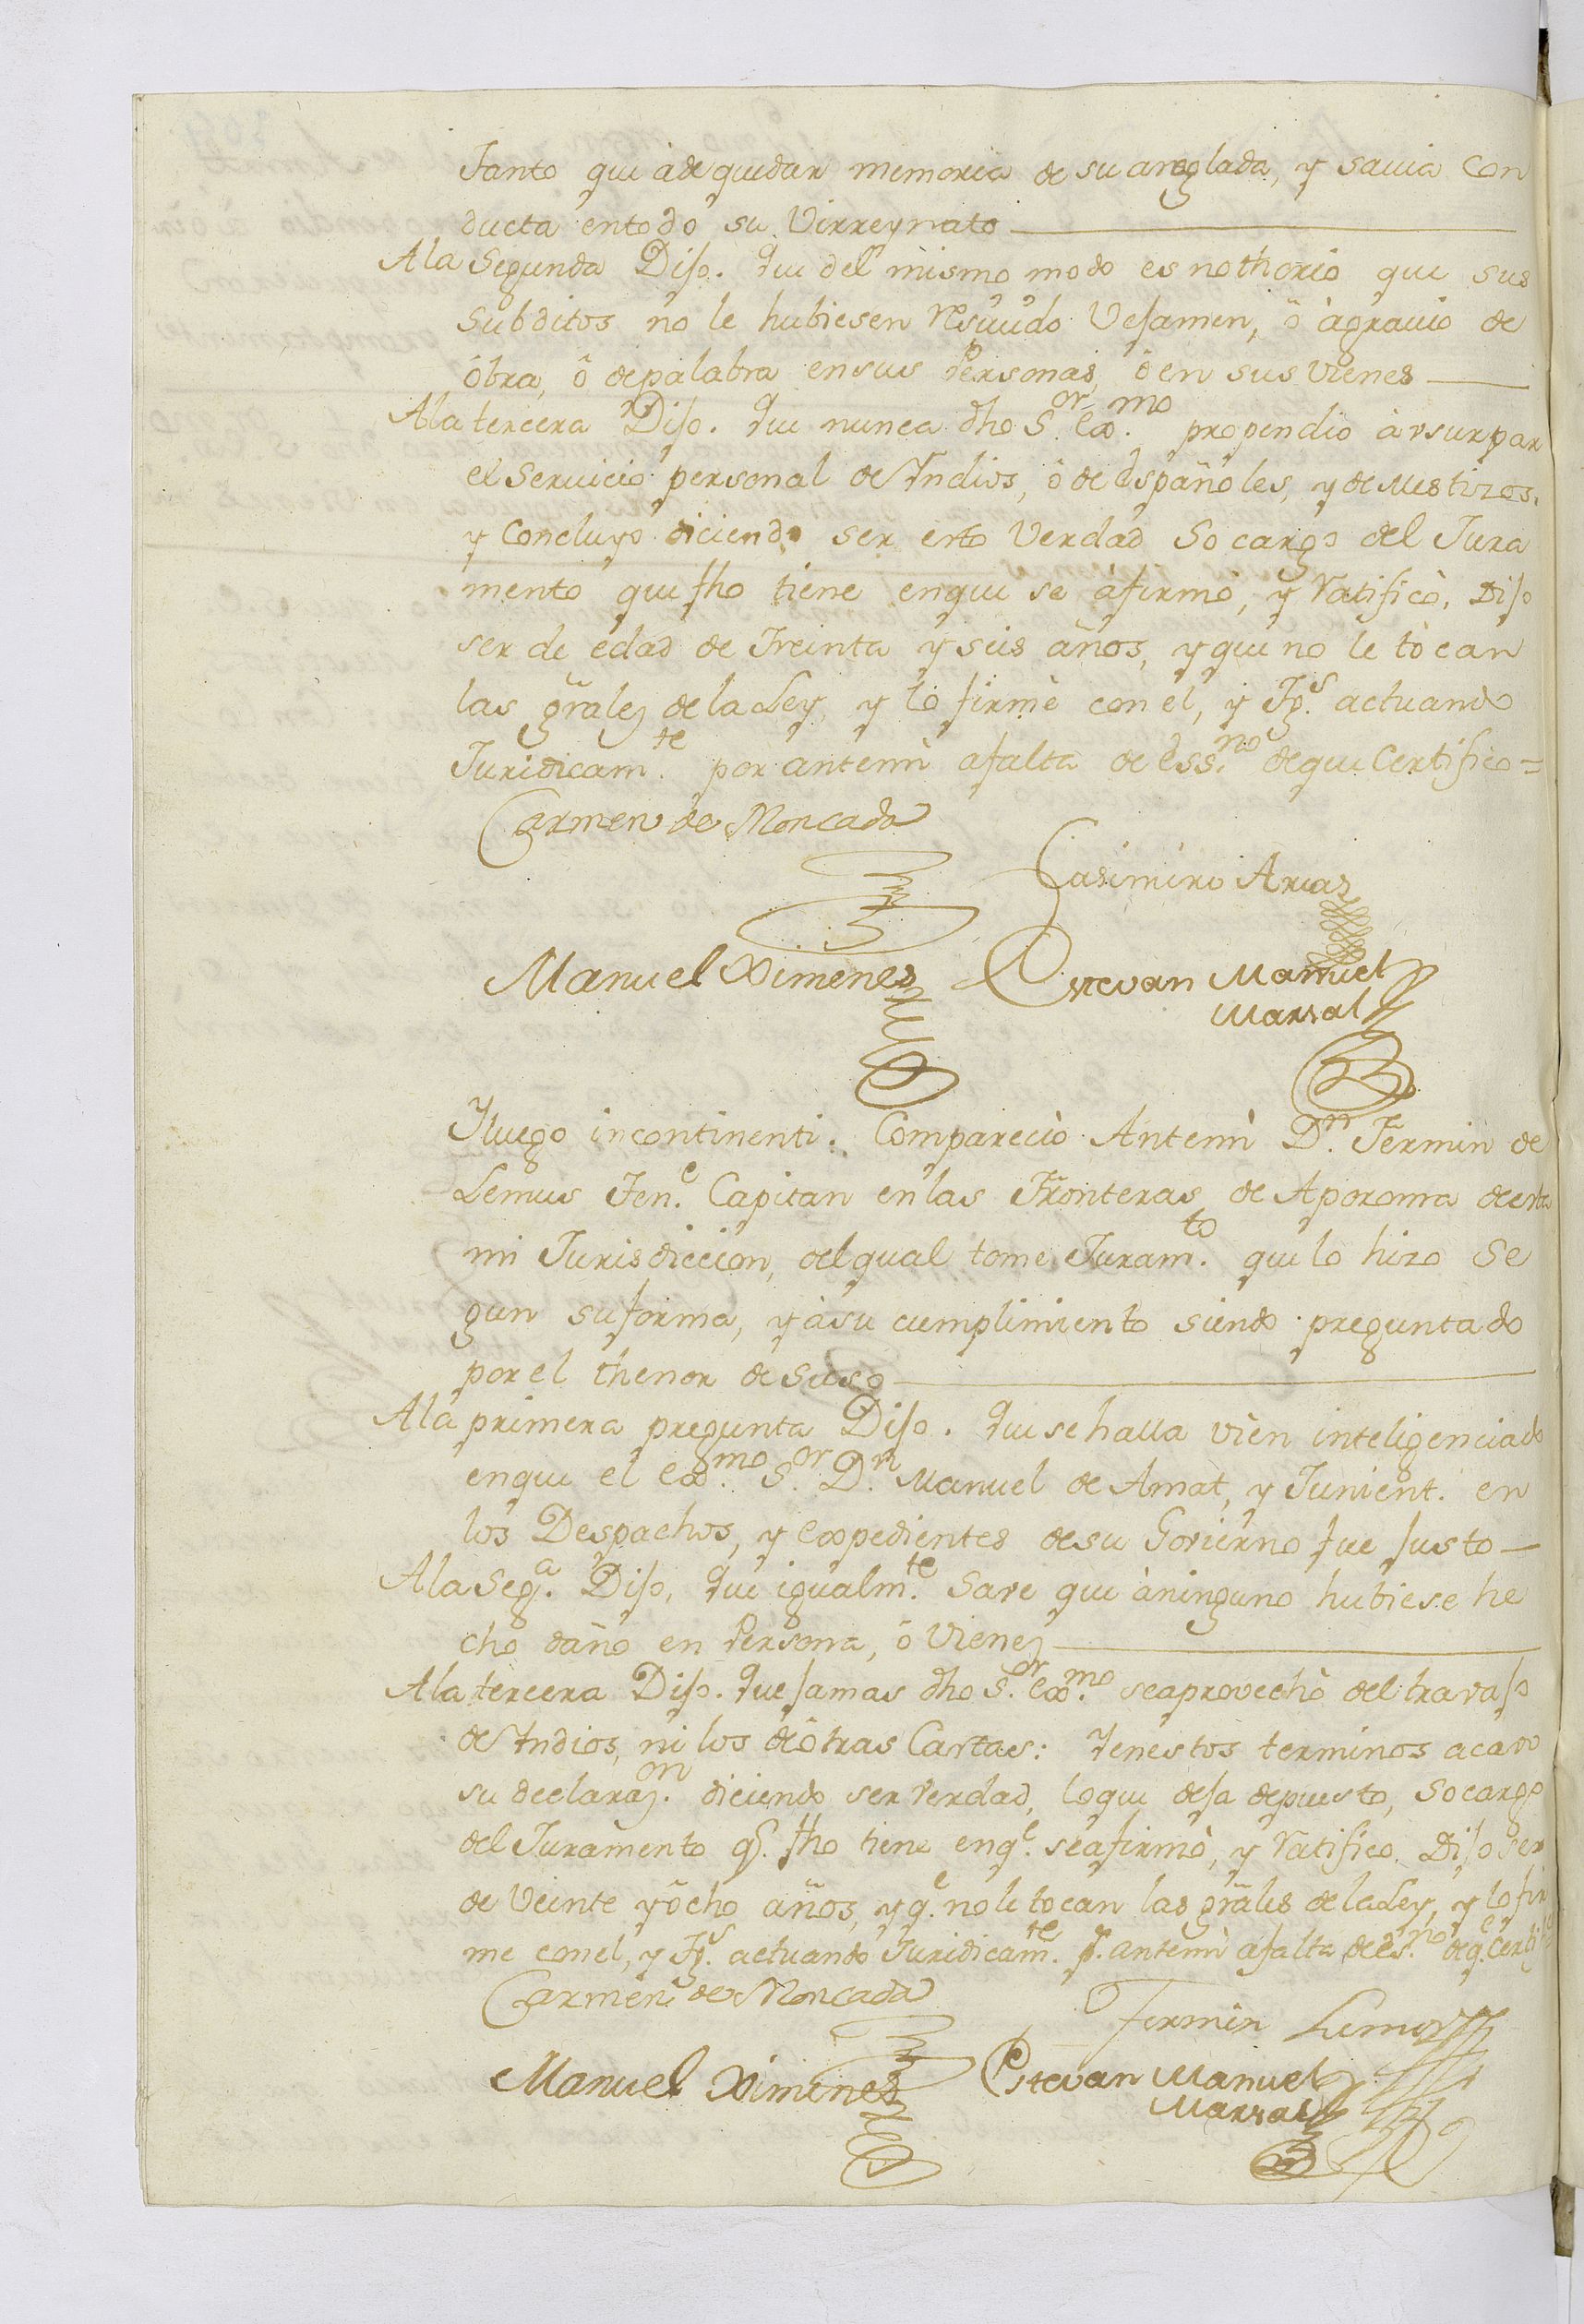 Tanto que à de quedar memoria de su arreglada, y savia Con
ducta en todo su Virreynato
A la Segunda Dijo. Que del mismo modo es nothorio que sus
Subditos no le hubiesen resiuido Vejamen, ô agrauio de
obra, ô de palabra en sus Personas, ô en sus vienes
A la tercera Dijo. Que nunca dho S.or Exx.mo propendio à vsurpar
el Seruicio personal de Yndios, ô de Españoles, y de Mestizos.
y Concluyo diciendo ser esto Verdad So cargo del Jura
mento que fho tiene en que se àfirmò, y Ratificò, Dijo
ser de edad de Treinta y seis años, y que no le tòcan
las grãles de la Ley, y lo firmè con el, y Tg.s actuando
Juridicam.te por antemi a falta de Ess.no de que Certifico =
Carmen de Moncada
Casimiro Arias
Manuel Ximenes Estevan Manuel
Marzal
Y luego incontinenti. Compareciò Antemi D.n Fermin de
Lemus Ten.e Capitan en las Fronteras de Aporoma de esta
mi Jurisdiccion, del qual tome Juram.to que lo hizo Se
gun su forma, y à su cumplimiento siendo preguntado
por el thenor de suso
A la primera pregunta Dijo. Que se halla vien inteligenciado
en que el Exx.mo S.or D.n Manuel de Amat, y Junient. en
los Despachos, y Expedientes de su Govierno fue justo
A la Seg.a Dijo, Que igualm.te Save que àninguno hubiese he
cho daño en Persona, ô Vienes
A la tercera Dijo. Que jamas dho S.or Exx.mo se aprovechò del travajo
de Yndios, ni los de ôtras Castas: Y en estos terminos acavo
su declaraz.on diciendo ser Verdad, lo que deja depuesto, So cargo
del Juramento q.e fho tiene en q.e se afirmò, y Ratifico. Dijo ser
de Veinte y ôcho años, y q.e no le tocan las grãles de la Ley, y lo fir
me con el, y Tg.s actuando Juridicam.te p.r antemi a falta de Es.no de q.e Certifico
Carmen de Moncada
Fermin Lemus
Manuel Ximenes Estevan Manuel
Marzal